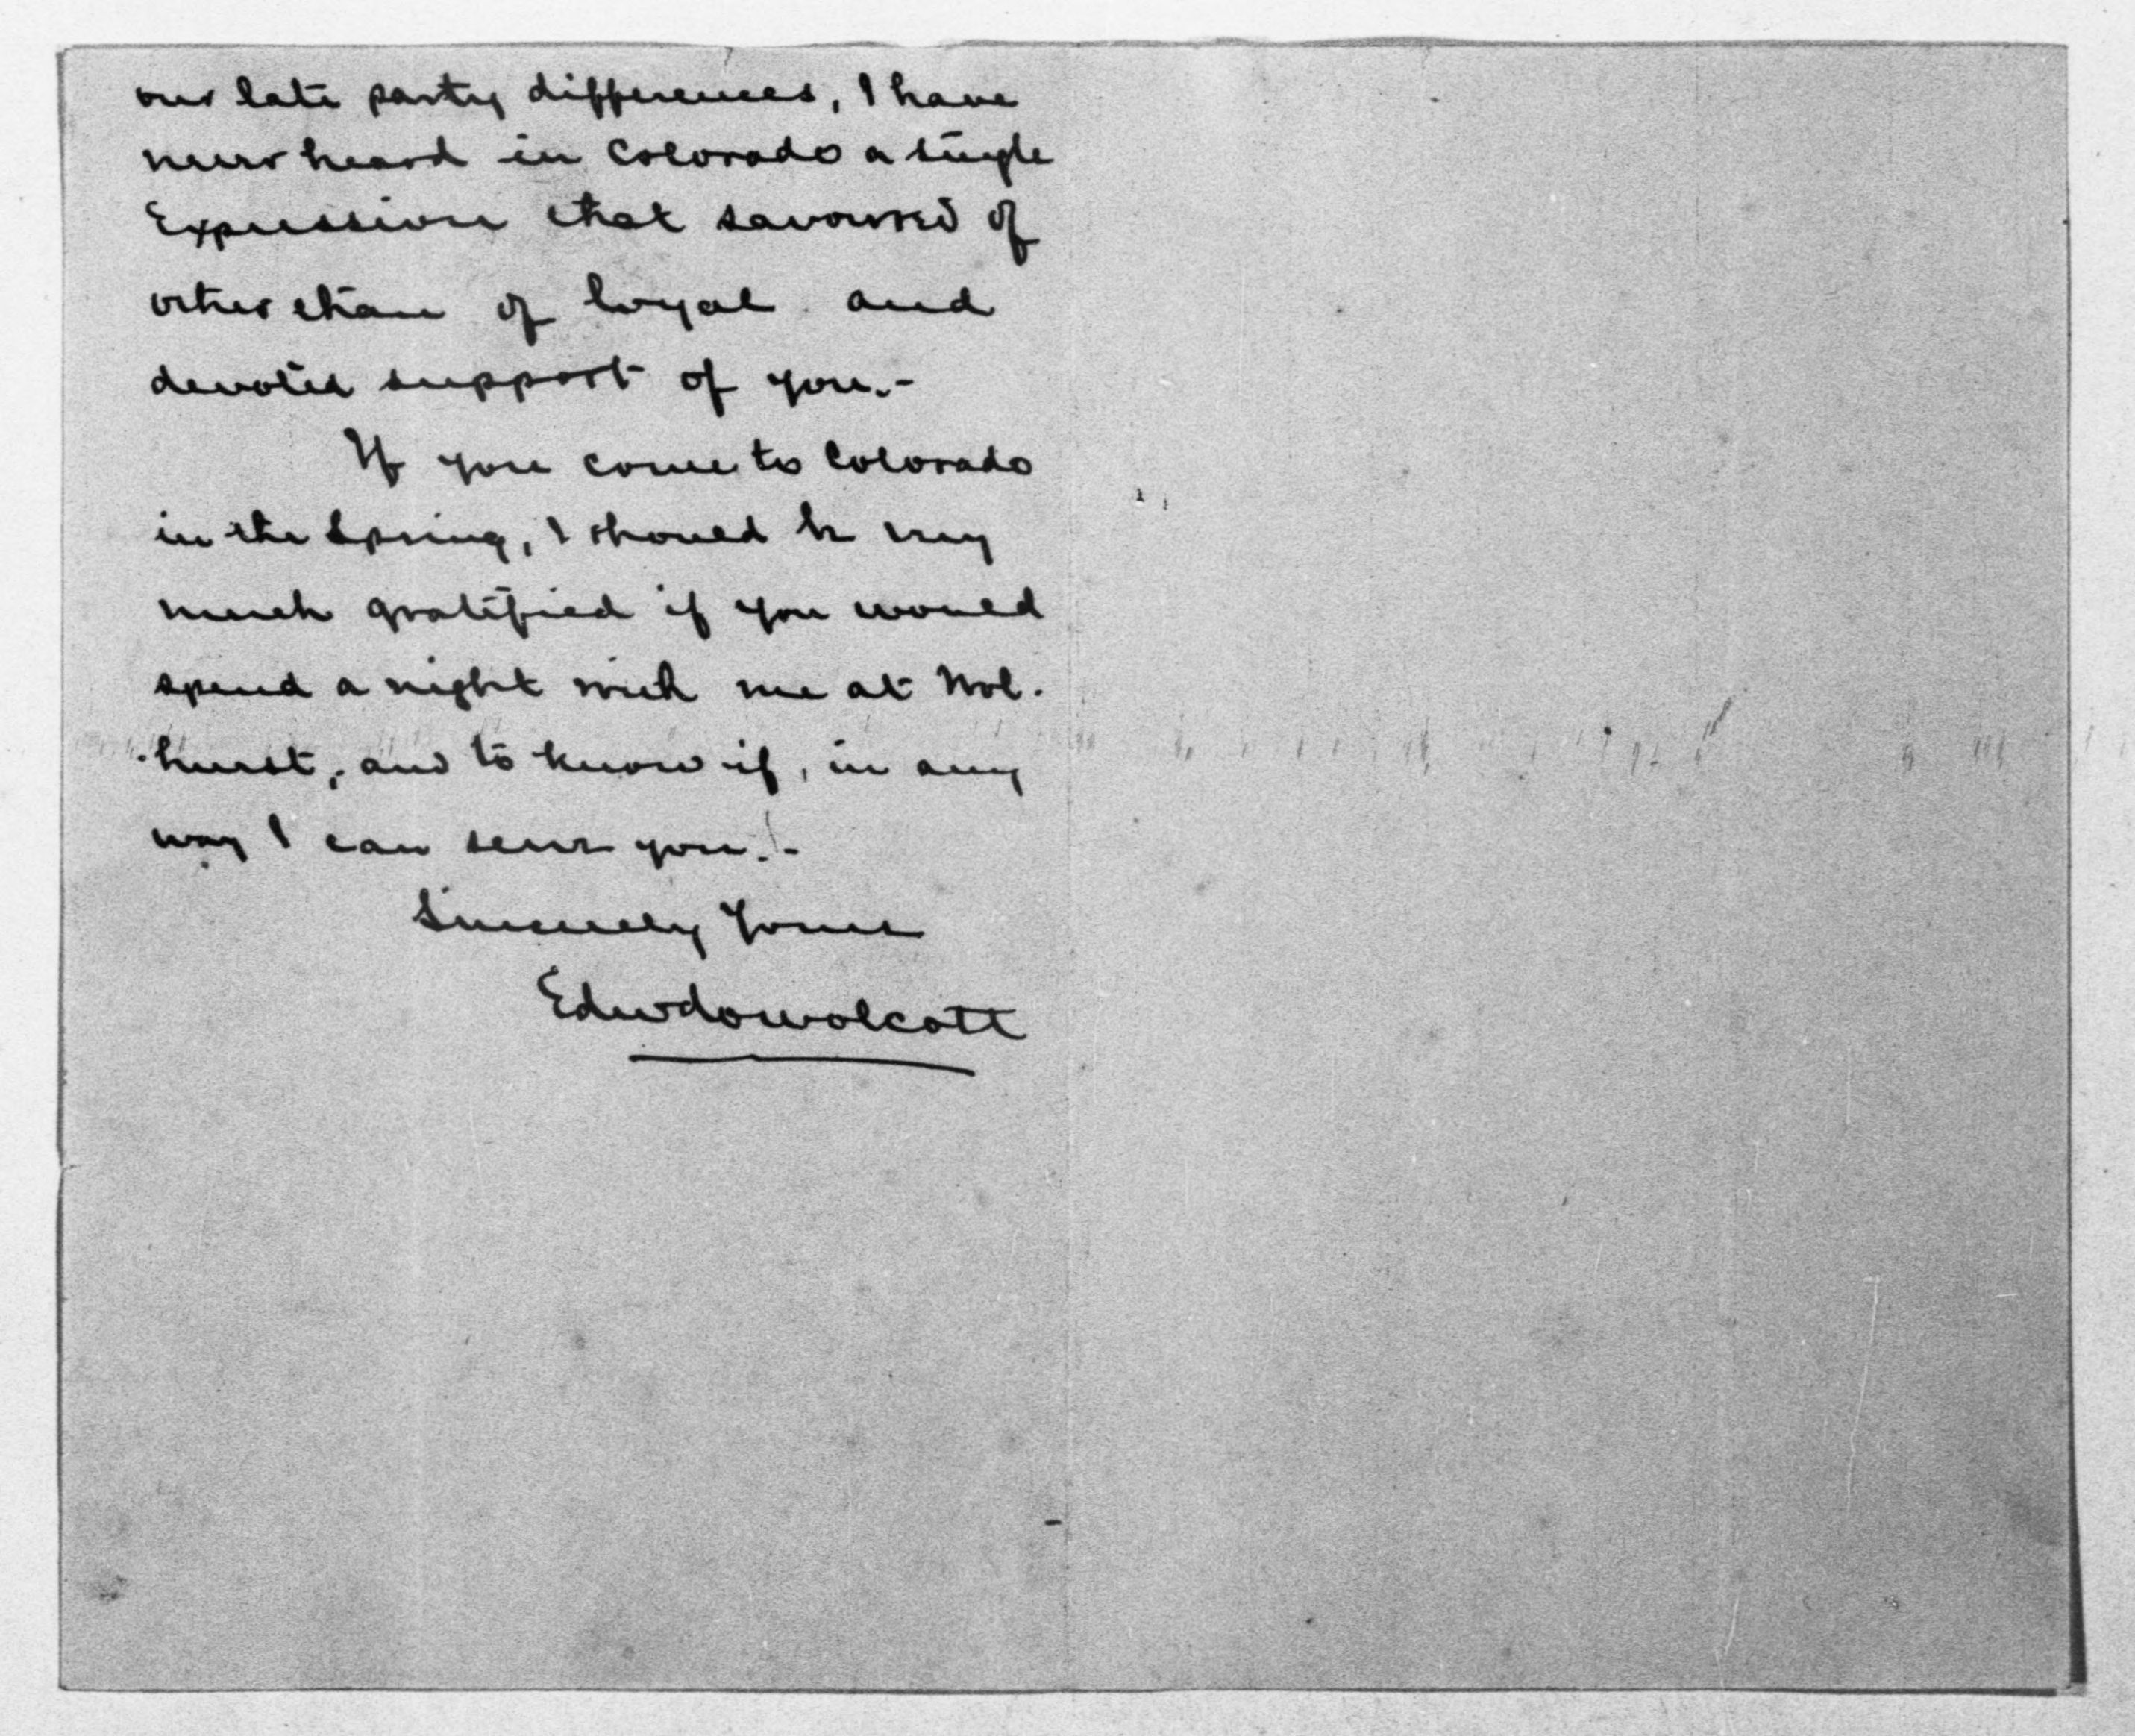 our late party differences, I have
never heard in Colorado a single
Expression that savoured of
other than of loyal and
devoted support of you.-
If you come to Colorado
in the Spring, I should be very
much gratified if you would
spend a night with me at Wol-
-hurst, and to know if, in any
way I can serve you.-
Sincerely Yours
Edwd O Wolcott